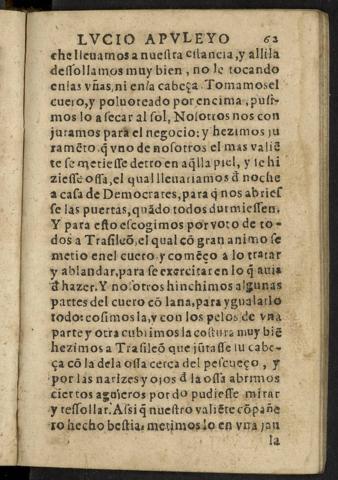 LVCIO APVLEYO 62
che lleuamos a nuestra estancia, y alli la
dessollamos muy bien, no le tocando
en las vñas, ni en la cabeça. Tomamos el
cuero, y poluoreado por encima, pusi-
mos lo a secar al sol, Nosotros nos con
juramos para el negocio: y hezimos ju
ramēto, q̄ vno de nosotros el mas valiē
te se metiesse dētro en aq̄lla piel, y se hi
ziesse ossa, el qual lleuariamos d̄ noche
a casa de Democrates, para q̄ nos abries
se las puertas, quādo todos durmiessen.
Y para esto escogimos por voto de to-
dos a Trasileō, el qual cō gran animo se
metio en el cuero, y comēço a lo tratar
y ablandar, para se exercitar en lo q̄ auia
d̄ hazer. Y nosotros hinchimos algunas
partes del cuero cō lana, para ygualarlo
todo: cosimos la, y con los pelos de vna
parte y otra cubrimos la costura muy biē
hezimos a Trasileō que jūtasse su cabe-
ça cō la de la ossa cerca del pescueço, y
por las narizes y ojos d̄ la ossa abrimos
ciertos agujeros por do pudiesse mirar
y ressollar. Assi q̄ nuestro valiēte cōpañe
ro hecho bestia, metimos lo en vna jau
la